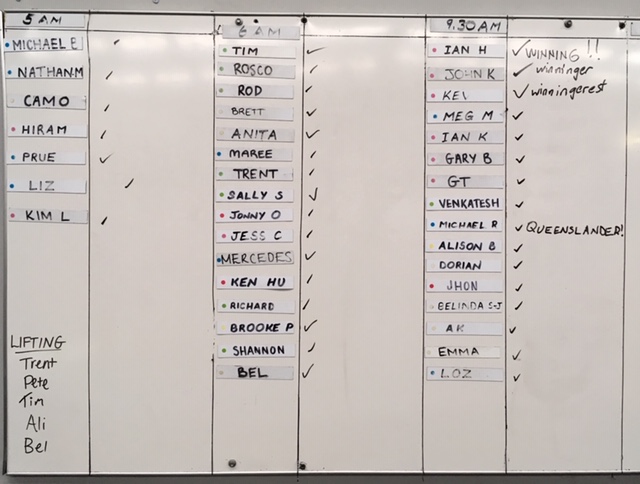 5 AM
MICHAEL E
NATHAN M
CAMO
HIRAM
PRUE
LIZ
KIM L
LIFTING
Trent
Pete
Tim
Ali
Bel
6 AM
TIM
ROSCO
ROD
BRETT
ANITA
MAREE
TRENT
SALLY S
JONNY O
JESS C
MERCEDES
KEN HU
RICHARD
BROOKE P
SHANNON
BEL
9.30 AM
IAN H WINNING !!
JOHN K winninger
KEV winningerest
MEG M
IAN K
GARY B
GT
VENKATESH
MICHAEL R QUEENSLANDER!
ALISON B
DORIAN
JHON
BELINDA S-J
AK
EMMA
LOZ